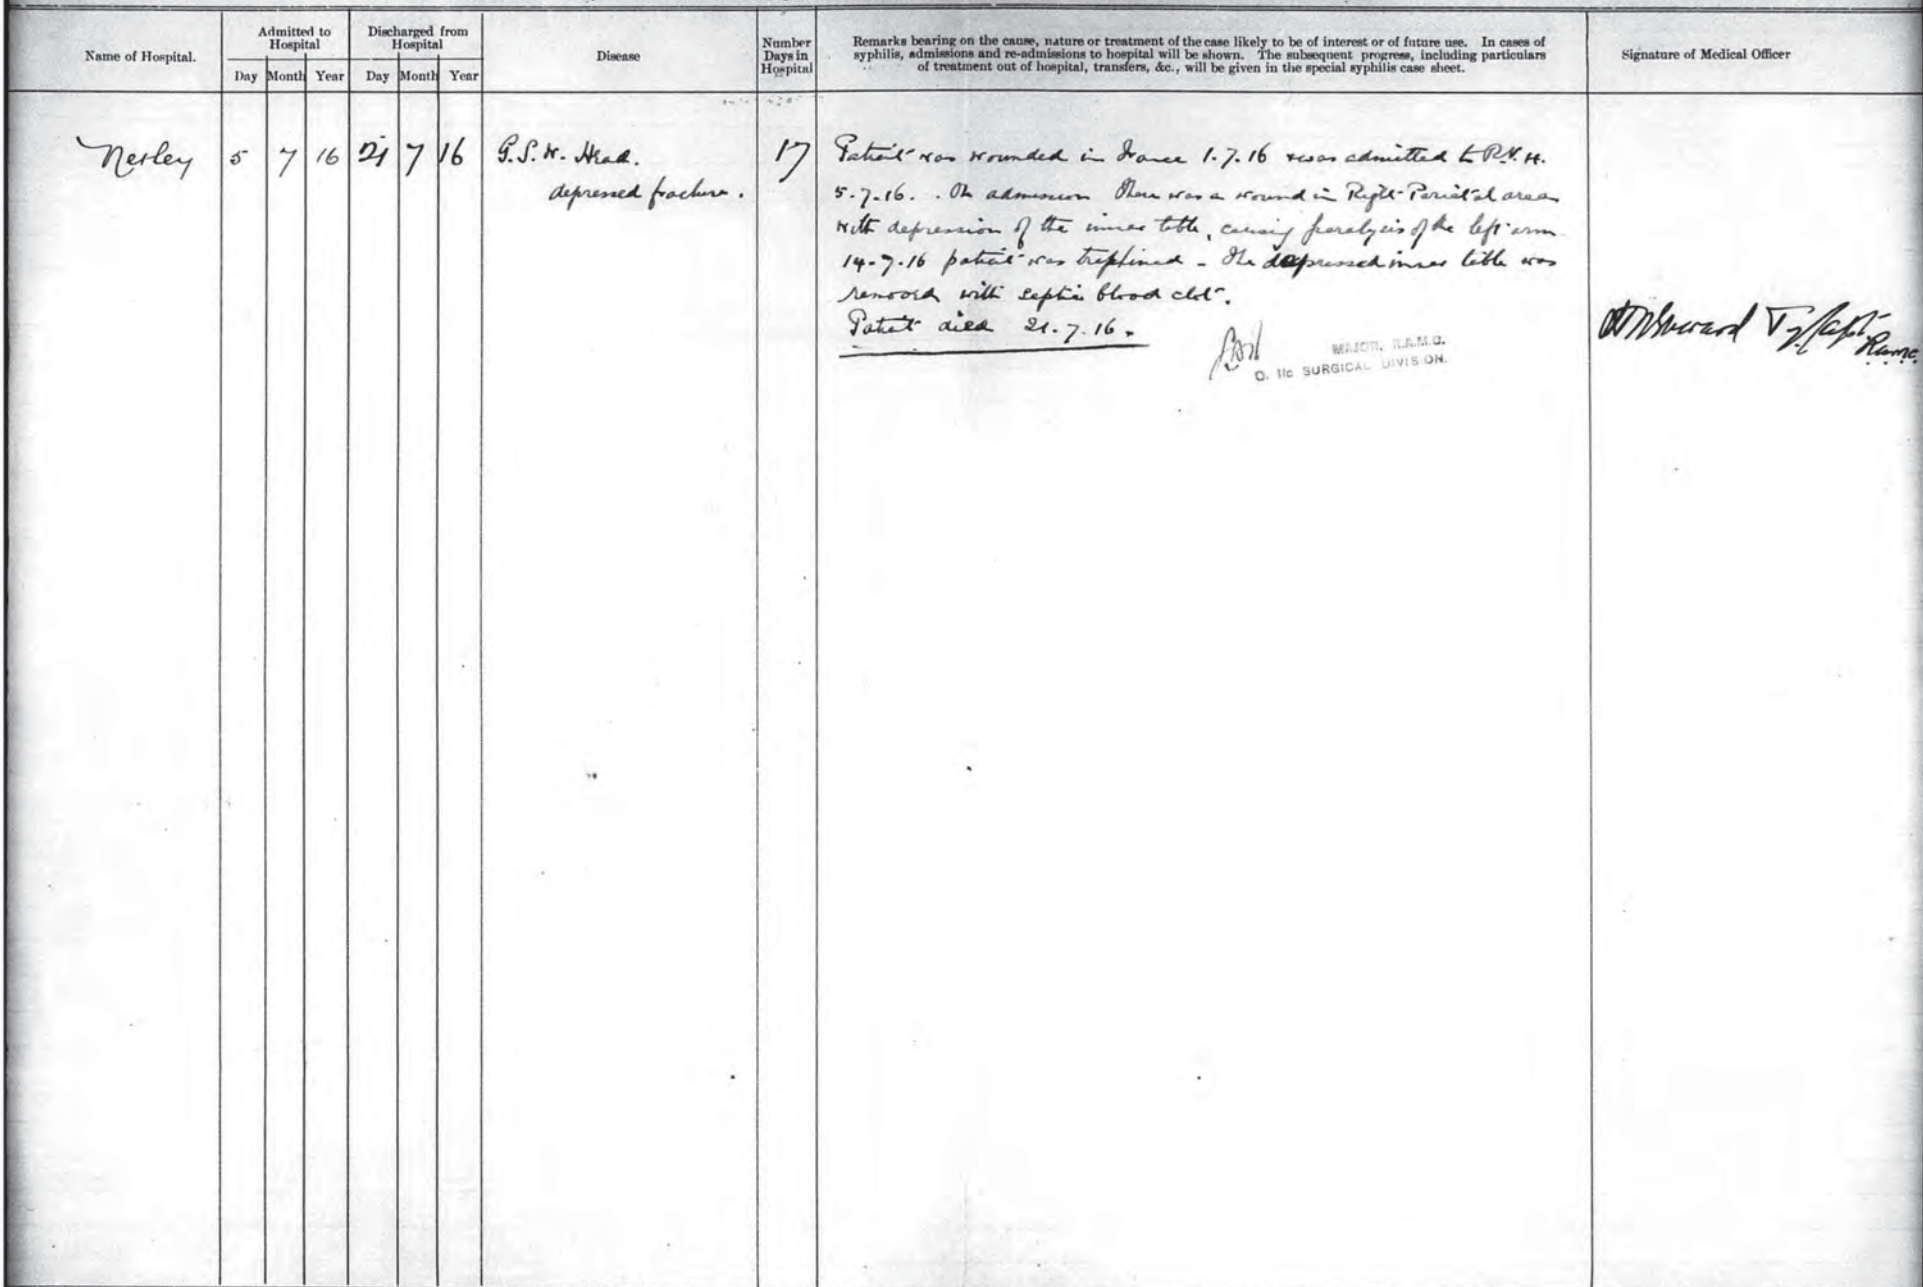 Name of Hospital.
Admitted to
Hospital
Day Month Year
Discharged from
Hospital
Day Month Year
Disease
Number
Days in
Hospital
Remarks bearing on the cause, nature or treatment of the case likely to be of interest or of future use. In cases of
syphilis, admissions and re-admissions to hospital will be shown. The subsequent progress, including particulars
of treatment out of hospital, transfers, &c., will be given in the special syphilis case sheet.
Signature of Medical Officer
Netley 5 7 16 21 7 16 G.S.W. Head. 17
depressed fracture.
Patient was wounded in France 1.7.16 & was admitted to R.V.H.
5.7.16. . On admission there was a wound in Right Parietal area
with depression of the inner table, causing paralysis of the left arm
14.7.16 patient was trephined - The depressed inner table was
removed with septic blood clot.
Patient died 21.7.16.
MAJOR, R.A.M.C.
O. i/c SURGICAL DIVISION.
Ty/Capt
R.a.m.c.